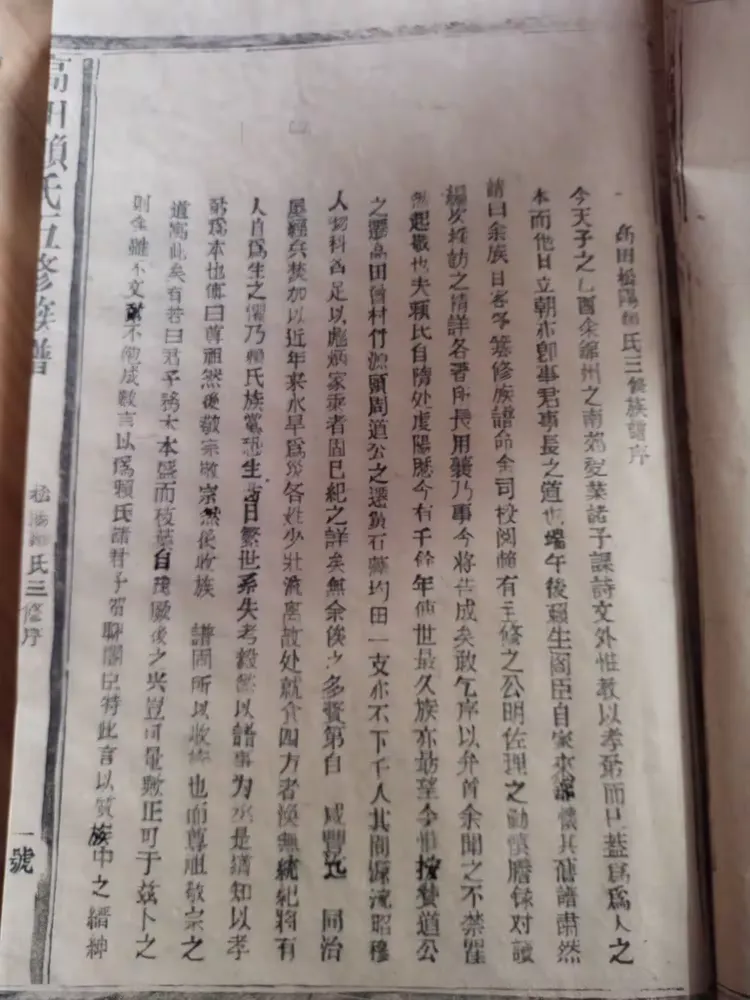 高田松陽賴氏三修族譜序
今天子之乙酉余錦州之南郊受業諸子課詩文外惟教以孝弟而已蓋為為人之
本而他日立朝亦卽事君事長之道也端午後賴生阁臣自家來懷其舊譜肅然
請曰余族日客冬纂修族譜命余司校阅雖有主修之公明佐理之勤慎謄錄对讀
編次採訪之精詳各著所長用襄乃事今將告成矣敢乞序以弁首余聞之不禁瞿
然起敬也夫賴氏自隋处虔陽歷今有千餘年傳世最久族亦最望今惟按贊道公
之遷高田曾村竹源願周道公之遷黃石藤均田一支亦不下千人其間源流昭穆
人物科名足以彪炳家乘者固已紀之詳矣無余俟之多贅第自 咸豐迄 同治
屢經兵焚加以近年来水旱為災各姓少壯流离散处就食四方者渙無統紀將有
人自為生之懼乃賴氏族黨恐生齒日繁世系失考毅然以譜事为亟是猶知以孝
弟為本也傳曰尊祖然後敬宗敬宗然後收族 譜固所以收族也而尊祖敬宗之
道寓此矣有若曰君子務大本盛而枝葉自茂厥後之兴豈可量歟正可于兹卜之
則余雖不文敢不勉成数言以為賴氏諸君子 阁臣特此言以質族中之縉紳
高田賴氏五修族譜
松陽賴氏三修序
一號